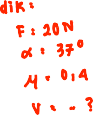 dik:
F: 20N
α: 37°
μ = 0,4
V = ..?